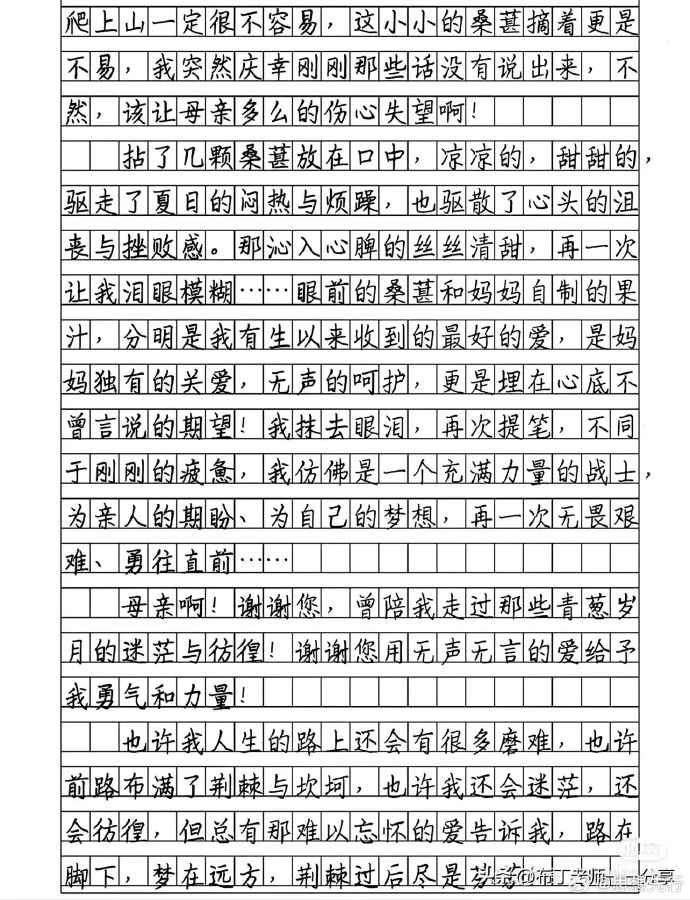 爬上山一定很不容易，这小小的桑葚摘着更是
不易，我突然庆幸刚刚那些话没有说出来，不
然，该让母亲多么的伤心失望啊！
拈了几颗桑葚放在口中，凉凉的，甜甜的，
驱走了夏日的闷热与烦躁，也驱散了心头的沮
丧与挫败感。那沁入心脾的丝丝清甜，再一次
让我泪眼模糊……眼前的桑葚和妈妈自制的果
汁，分明是我有生以来收到的最好的爱，是妈
妈独有的关爱，无声的呵护，更是埋在心底不
曾言说的期望！我抹去眼泪，再次提笔，不同
于刚刚的疲惫，我仿佛是一个充满力量的战士，
为亲人的期盼、为自己的梦想，再一次无畏艰
难、勇往直前……
母亲啊！谢谢您，曾陪我走过那些青葱岁
月的迷茫与彷徨！谢谢您用无声无言的爱给予
我勇气和力量！
也许我人生的路上还会有很多磨难，也许
前路布满了荆棘与坎坷，也许我还会迷茫，还
会彷徨，但总有那难以忘怀的爱告诉我，路在
脚下，梦在远方，荆棘过后尽是芬
小红书
头条@布丁老师
分享